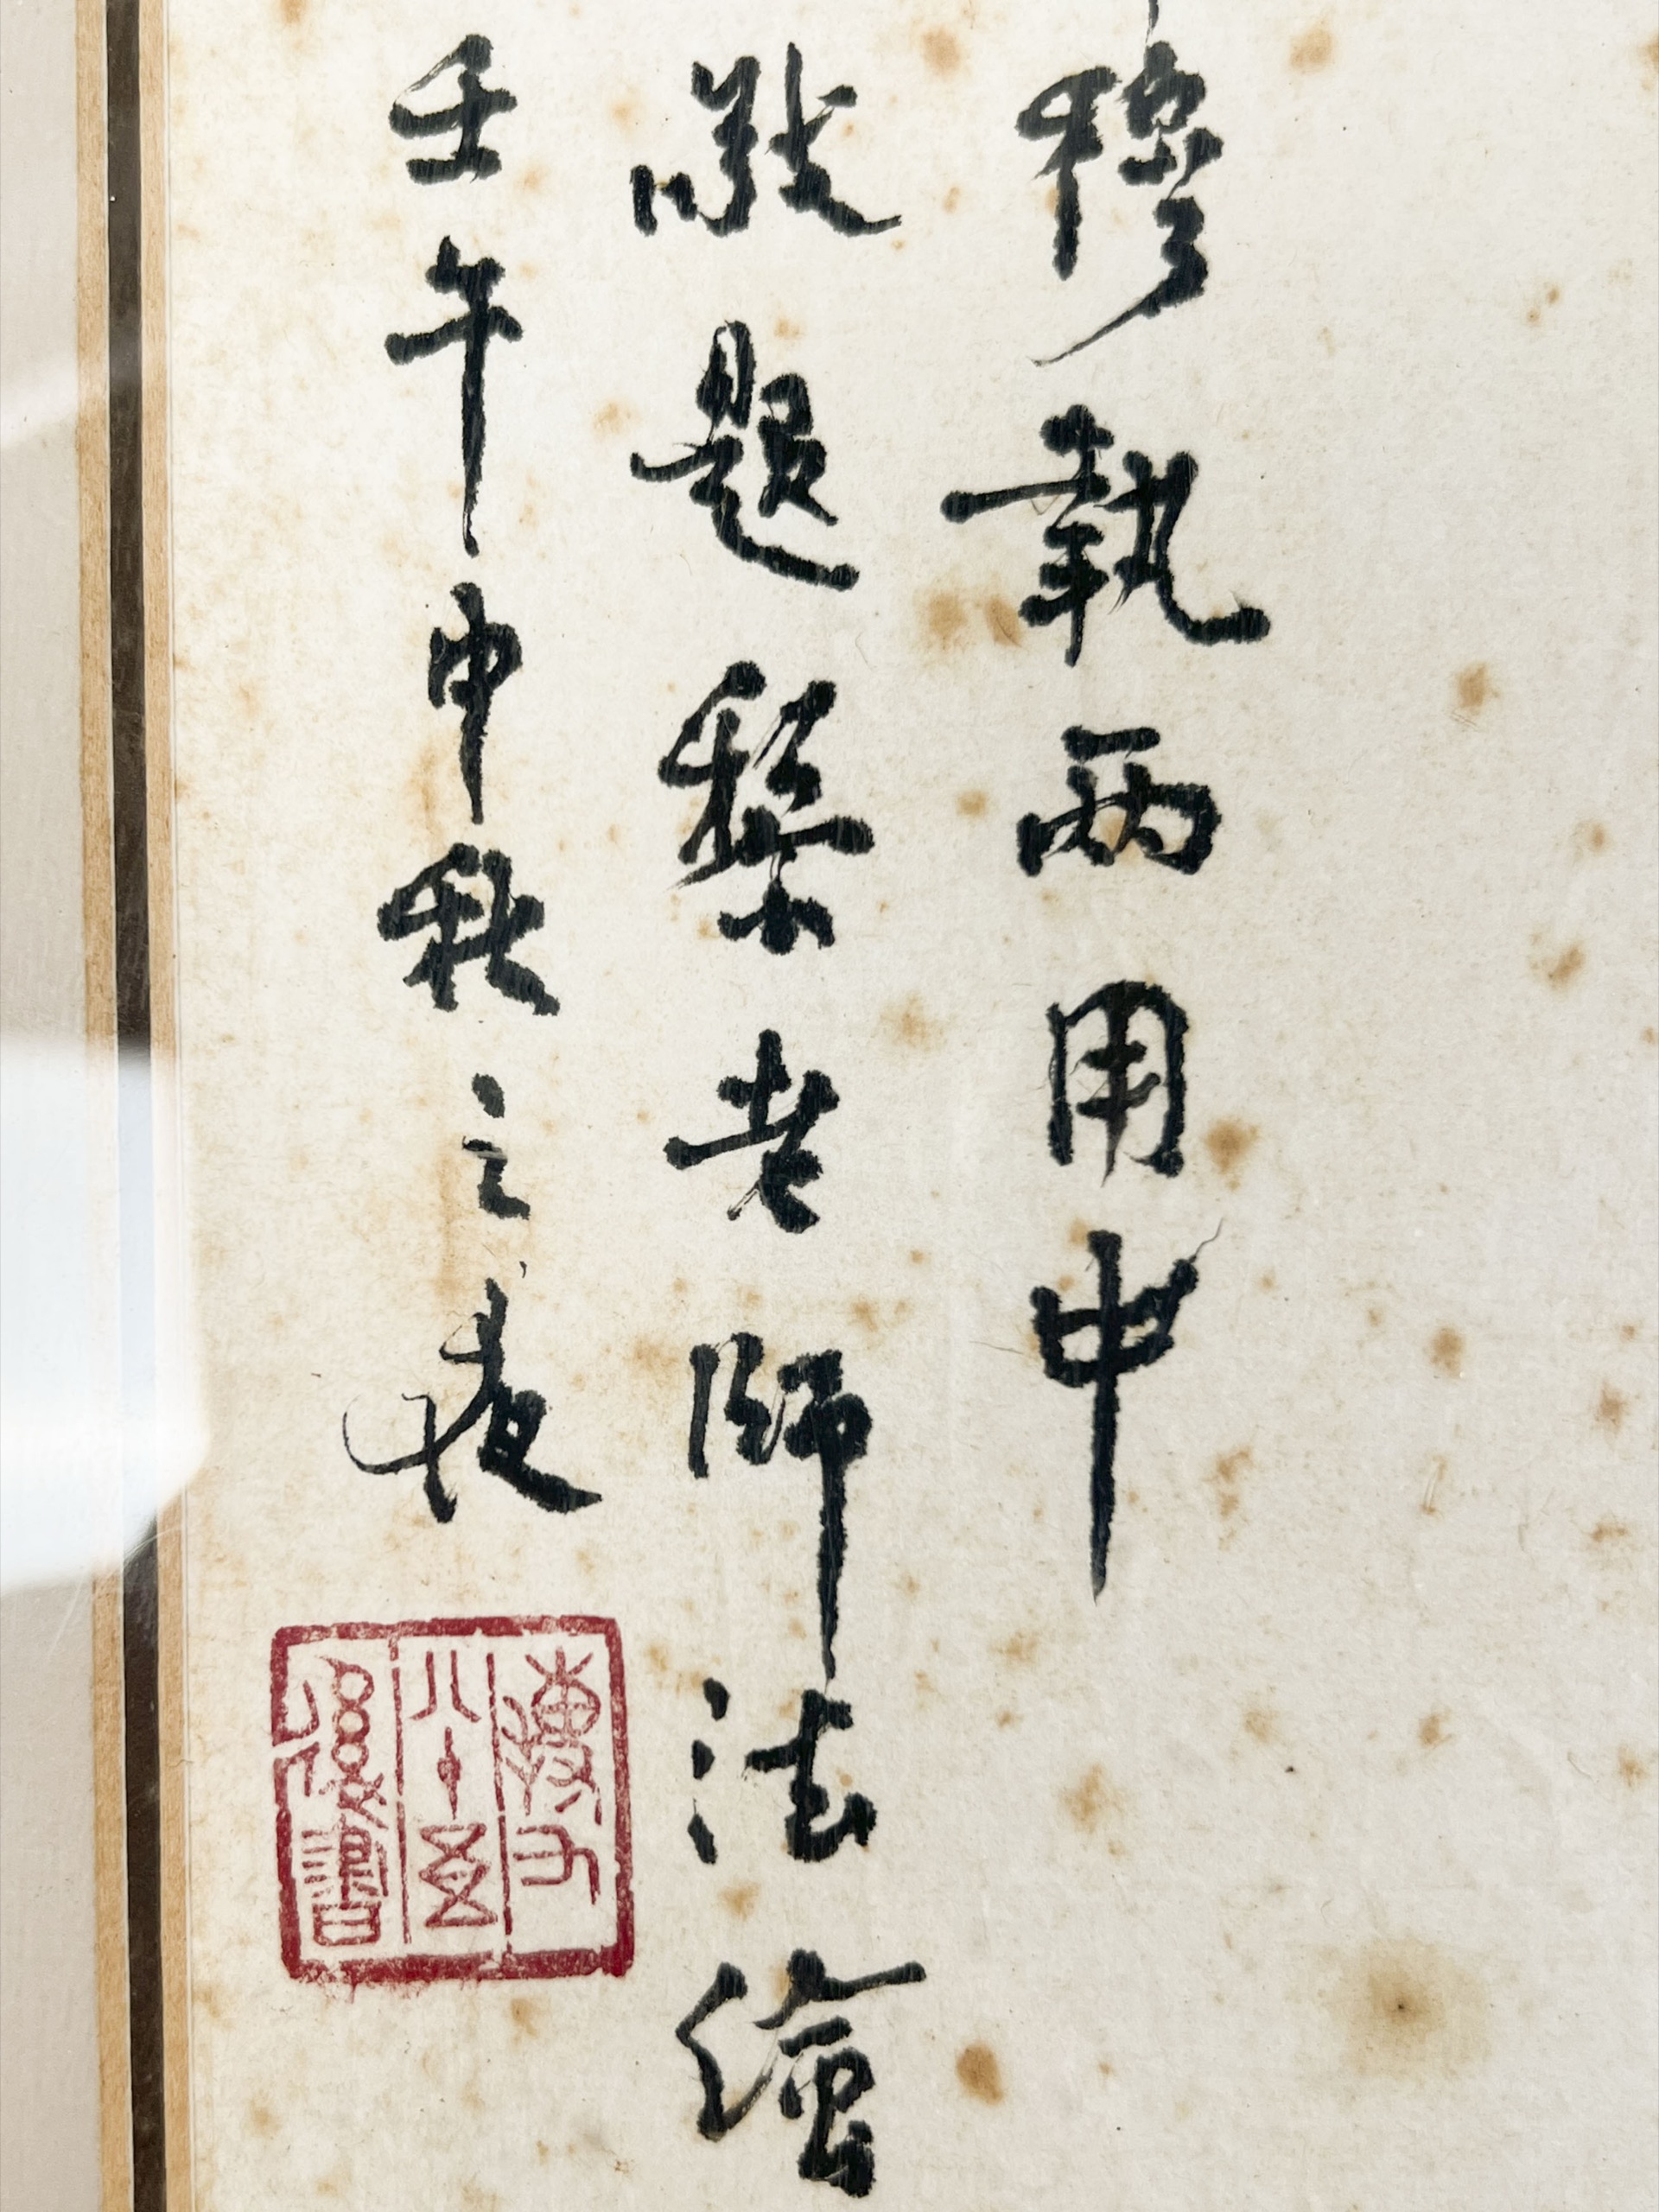 穆執兩用中
敬題黎老師法繪
壬午中秋之夜
子
八十五
後書